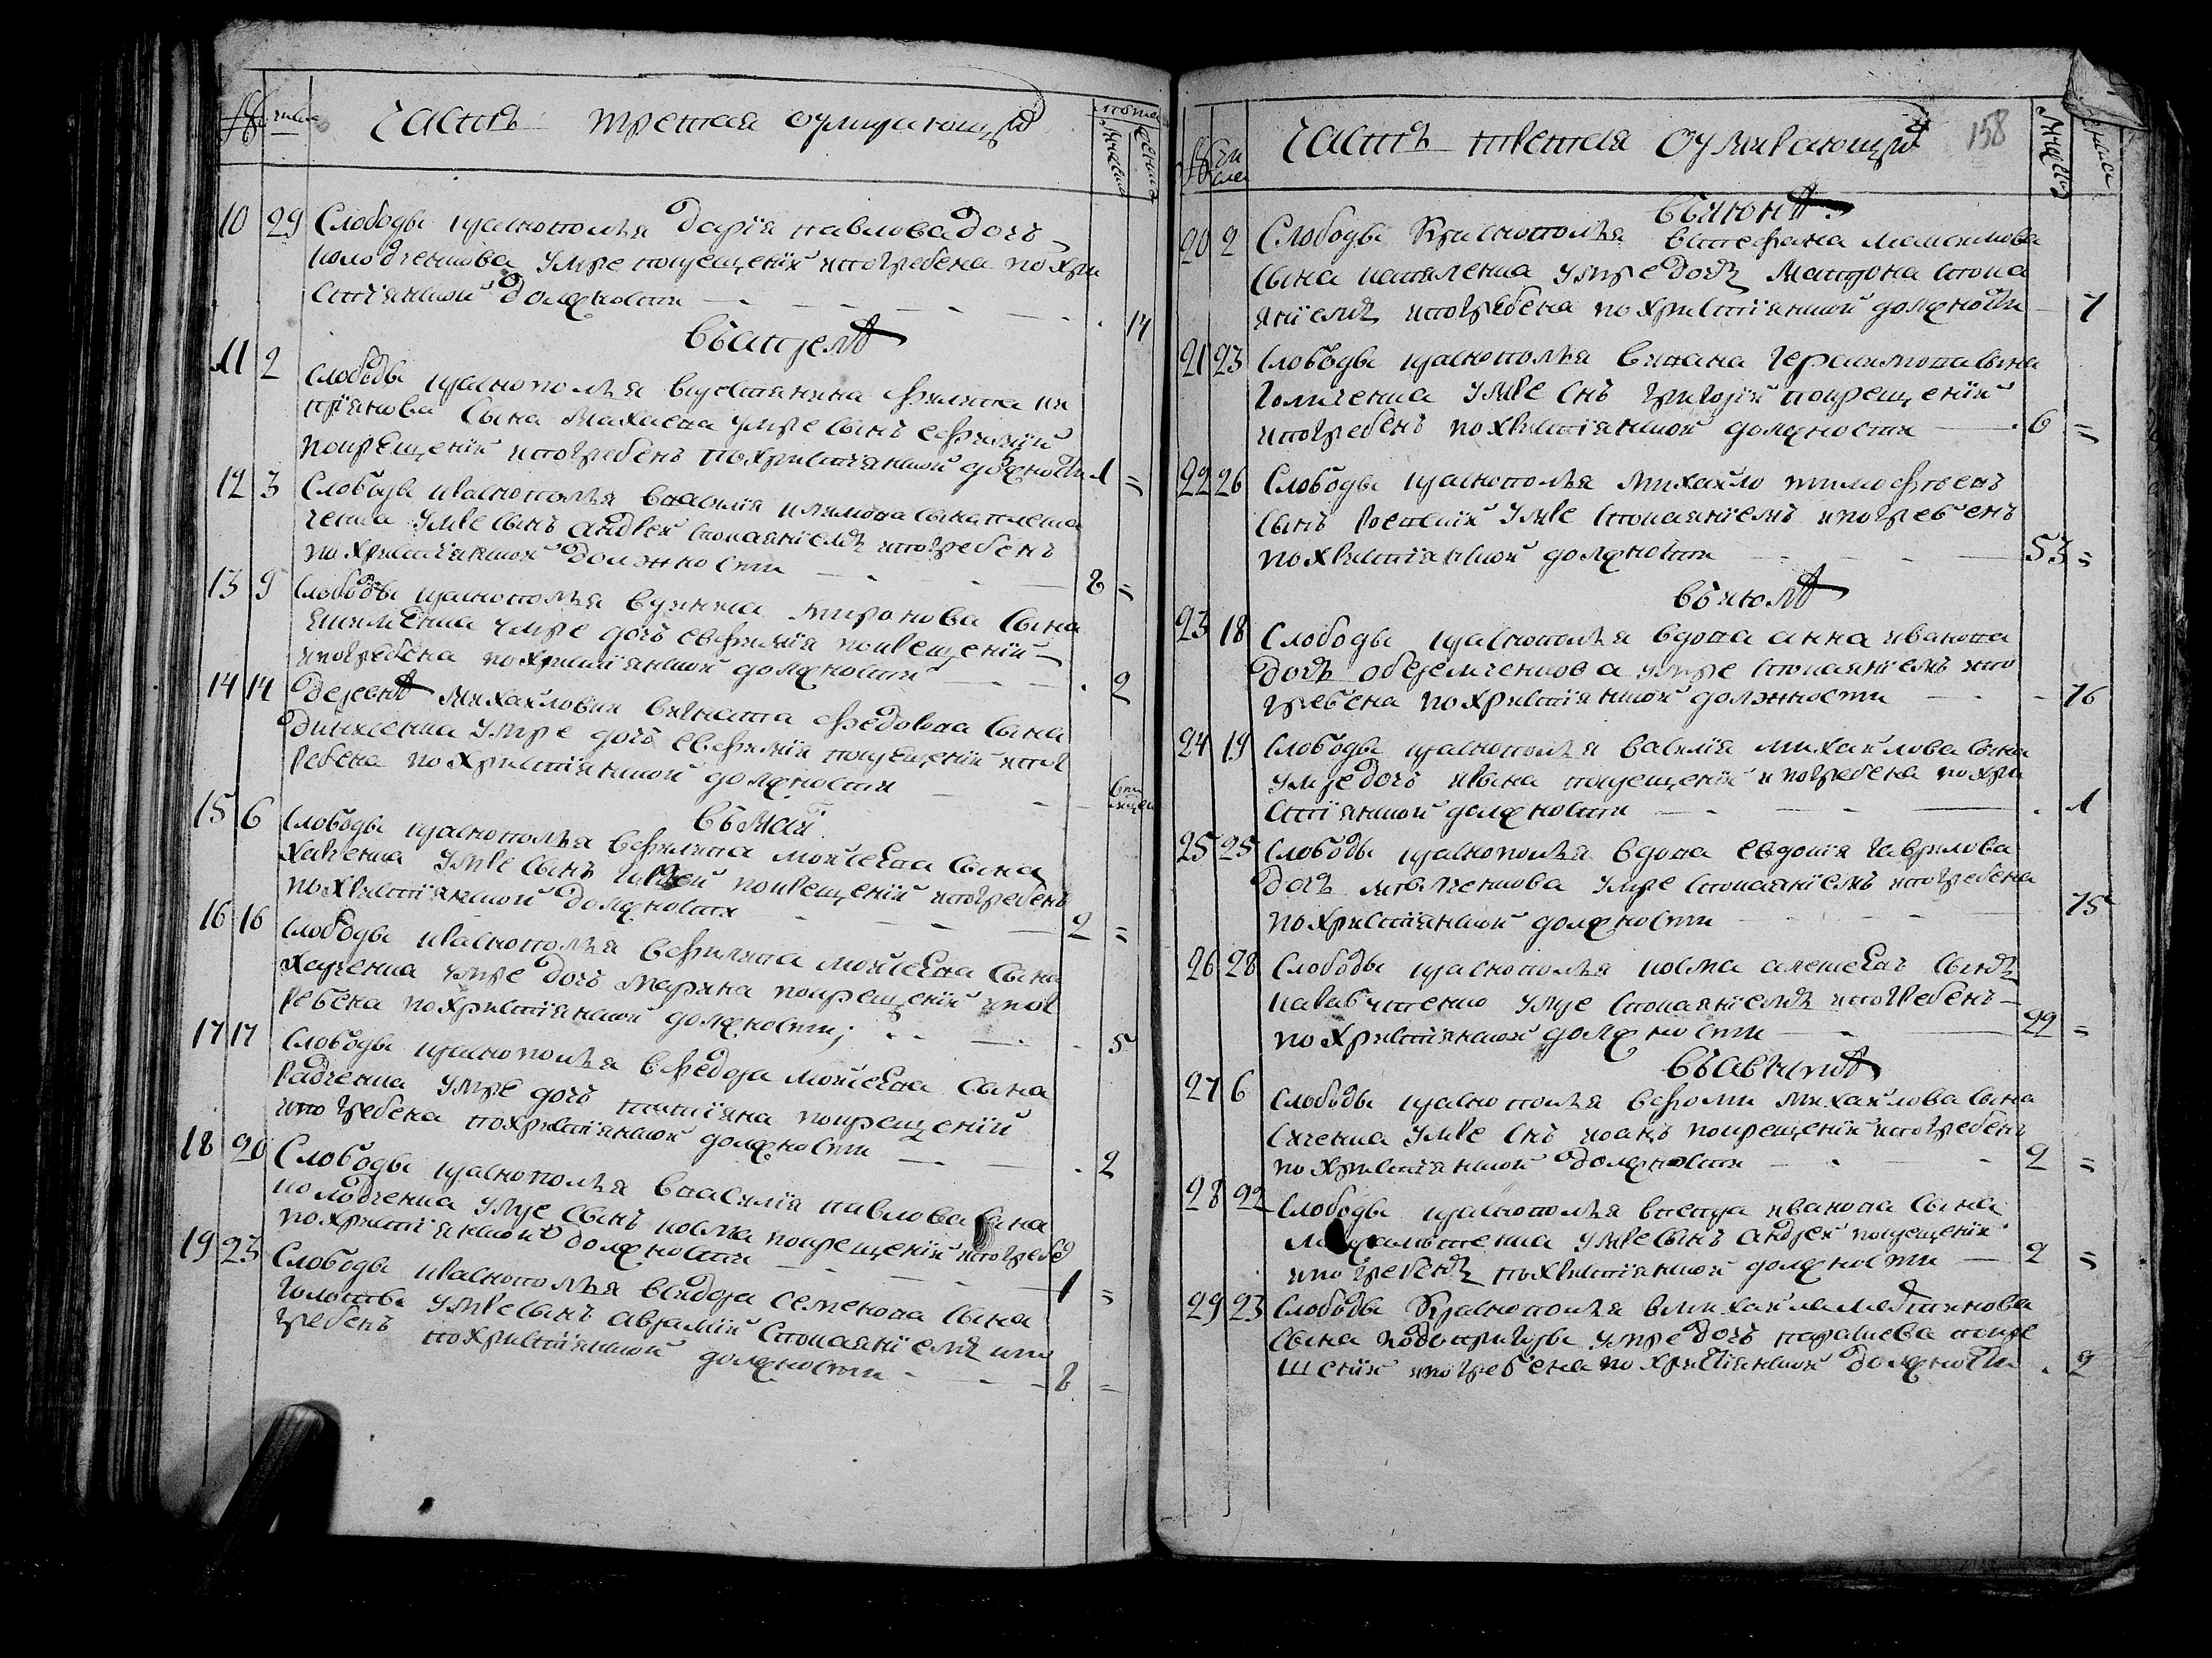 числа Часть третая оумирающиⷯ лѣта
10 29 Слободы краснополья дарїя павлова дочь
колодченкова умре по крещенїи и погребена по хри
стїянской должности 14
въ апрелѣ
11 2 слободы краснополья филипа
сына умре сынъ ефимїй
по крещенїи и погребенъ по христїянской должности 1 =
12 3 Слободы краснополья василия сына
ченка умре сынъ андрей с покаянїемъ и погребенъ
по христїянской должности 8 =
13 5 Слободы краснополья миронова сына
умре дочь евфимїя по крещенїи
и погребена по христїянской должности 2
14 14 деревнѣ михайловки в игната федорова сына
умре дочь евфимїя по крещенїи и пог
ребена по христїянской должности
въ маї
15 6 Слободы краснополья в филипа мойсеева сына
харченка умре сынъ по крещенїи и погребенъ
по христїянской должности 2 =
16 16 слободы краснополья в филипа мойсеева сына
харченка умре дочь марина по крещенїи и пог
ребена по христїянской должности 5
17 17 Слободы краснополья в федора мойсеева сына
радченка умре дочь татїяна по крещенїи
и погребена по христїянской должности 2
18 20 Слободы краснополья в василїя павлова сына
колодченка умре сынъ косма по крещенїи и погребеⷩ
по христїянской должности 1 =
19 23 Слободы краснополья в сидора семенова сына
голоты умре сынъ аврамїй с покаянїемъ и по
гребенъ по христїянской должности 8 =
числа Часть третая оумирающиⷯ 158
въ июнѣ
20 2 Слободы Краснополья в стефана максимова
сына умре дочь с пока
янїемъ и погребена по христїянской должности 7
21 23 Слободы краснополья в ивана герасимова сына
умре снъ григорїй по крещенїи
и погребенъ по христїянской должности 6 =
22 26 Слободы краснополья михайло тимофѣевъ
сынъ умре с покаянїемъ и погребенъ
по христїянской должности 53 =
въ июлѣ
23 18 Слободы краснополья вдова анна иванова
дочь умре с покаянїемъ и по
гребена по христїянской должности 76
24 19 Слободы краснополья в василїя михайлова сына
умре дочь по крещенїи и погребена по хри
стїянской должности 1
25 25 Слободы краснополья вдова евдокия гаврилова
дочь умре с покаянїемъ и погребена
по христїянской должности 75
26 28 Слободы краснополья косма алексеевъ сынъ
умре с покаянїемъ и погребенъ
по христїянской должности 22 =
въ августѣ
27 6 Слободы краснополья в фомы михайлова сына
умре снъ иоанъ по крещенїи и погребенъ
по христїянской должности 2 =
28 22 Слободы краснополья в петра иванова сына
умре сынъ андрей по крещенїи
и погребенъ по христїянской должности 2 =
29 23 Слободы Краснополья в михайла мартинова
сына подопригоры умре дочь параскева по кре
щенїи и погребена по христїянской должности 2